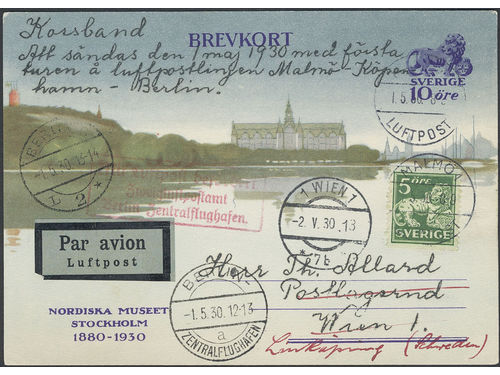 Korsband
Att sändas den 1 maj 1930 med första
turen å luftpostlinjen Malmö-Köpen
hamn - Berlin.
BREVKORT
SVERIGE
10 öre
1.5.30.
LUFTPOST
BERLIN
-1.5.30.12-13
L 2 *
Luftpostamt
Berlin Zentralflughafen.
MALMÖ
5 ÖRE
SVERIGE
1 WIEN 1
-2.V.30.13
* 7b
Par avion
Luftpost
Herr Th. Allard
Postlagernd
Wien 1.
Linköping (Schweden)
BERLIN
-1.5.30.12-13
a
ZENTRALFLUGHAFEN
NORDISKA MUSEET
STOCKHOLM
1880-1930